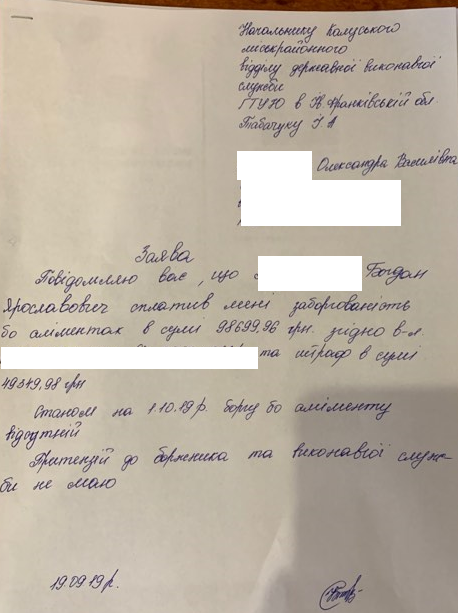 Начальнику Калуського
міськрайонного
відділу державної виконавчої
служби
ГТУЮ в Ів Франківській обл.
Табачуку І. А
Олександра Василівна
Заява
Повідомляю вас, що Богдан
Ярославович сплатив мені заборгованість
по аліментах в сумі 98699,96 грн. згідно в-л.
та штраф в сумі
49349,98 грн
Станом на 1.10.19 р. боргу по аліменту
відсутній
Притензій до боржника та виконавчої служ-
би не маю
19.09 19 р.